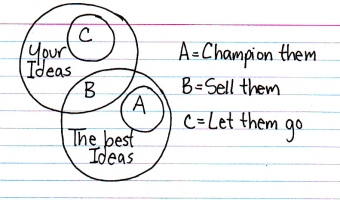 C
Your
Ideas
B
A
The best
Ideas
A=Champion them
B=Sell them
C=Let them go